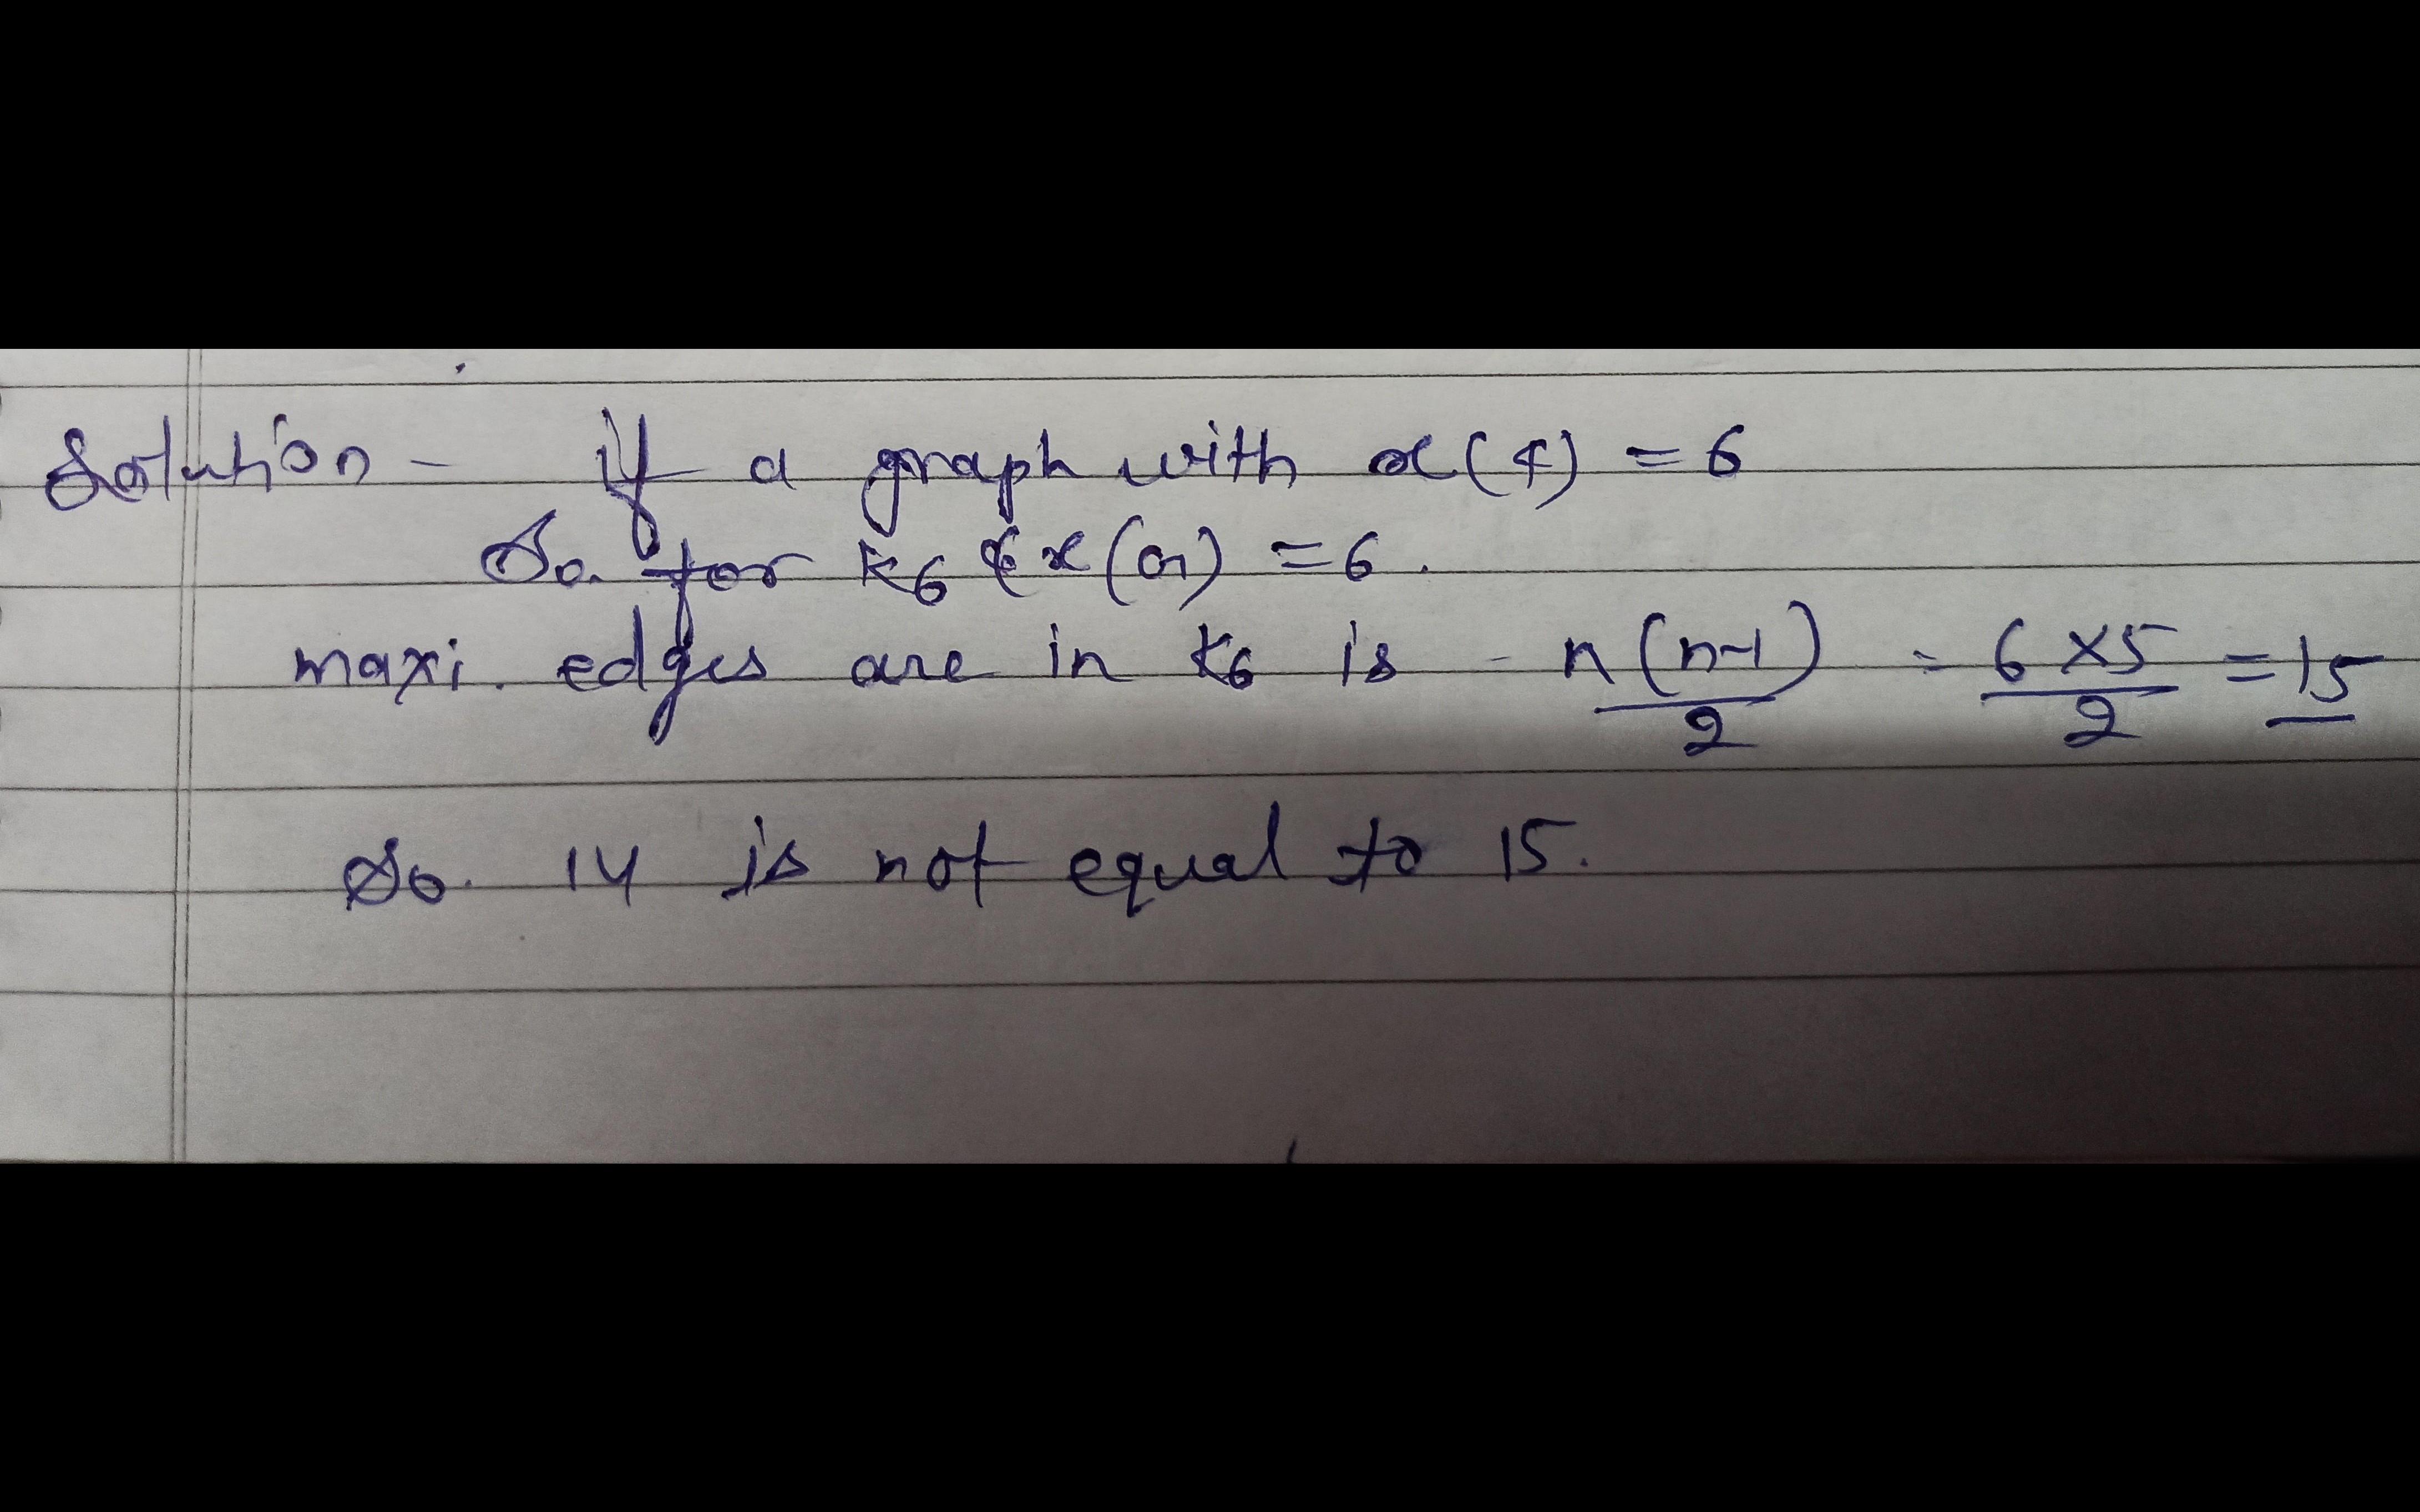 Solution - if a graph with x(G) = 6
So. for K6 x(G) = 6.
maxi. edges are in K6 is - n(n-1)/2 = 6×5/2 = 15
So. 14 is not equal to 15.